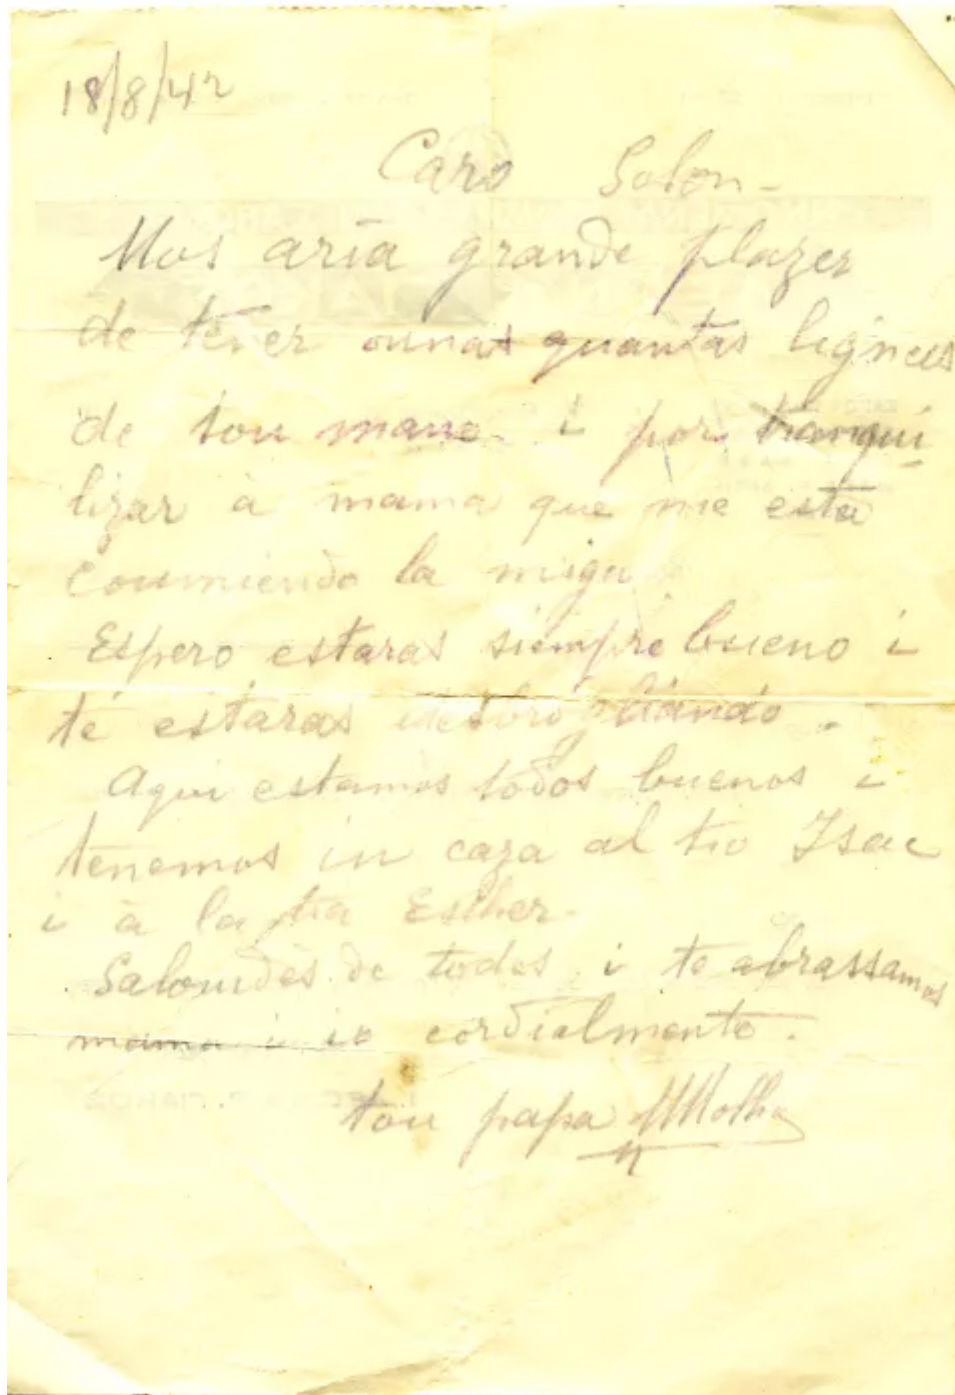 18/8/42
Caro Solon -
Mos aria grande plazer
de tener ounas quantas lignas
de tou mano i por tranqui
lizar à mama que me esta
coumiendo la miga
Espero estaras siempre bueno i
te estaras desbrogliando.
Aqui estamos todos buenos i
tenemos in caza al tio Isac
i à la tia Esther.
Saloudes de todos i te abrassamos
mama i io cordialmente.
tou papa